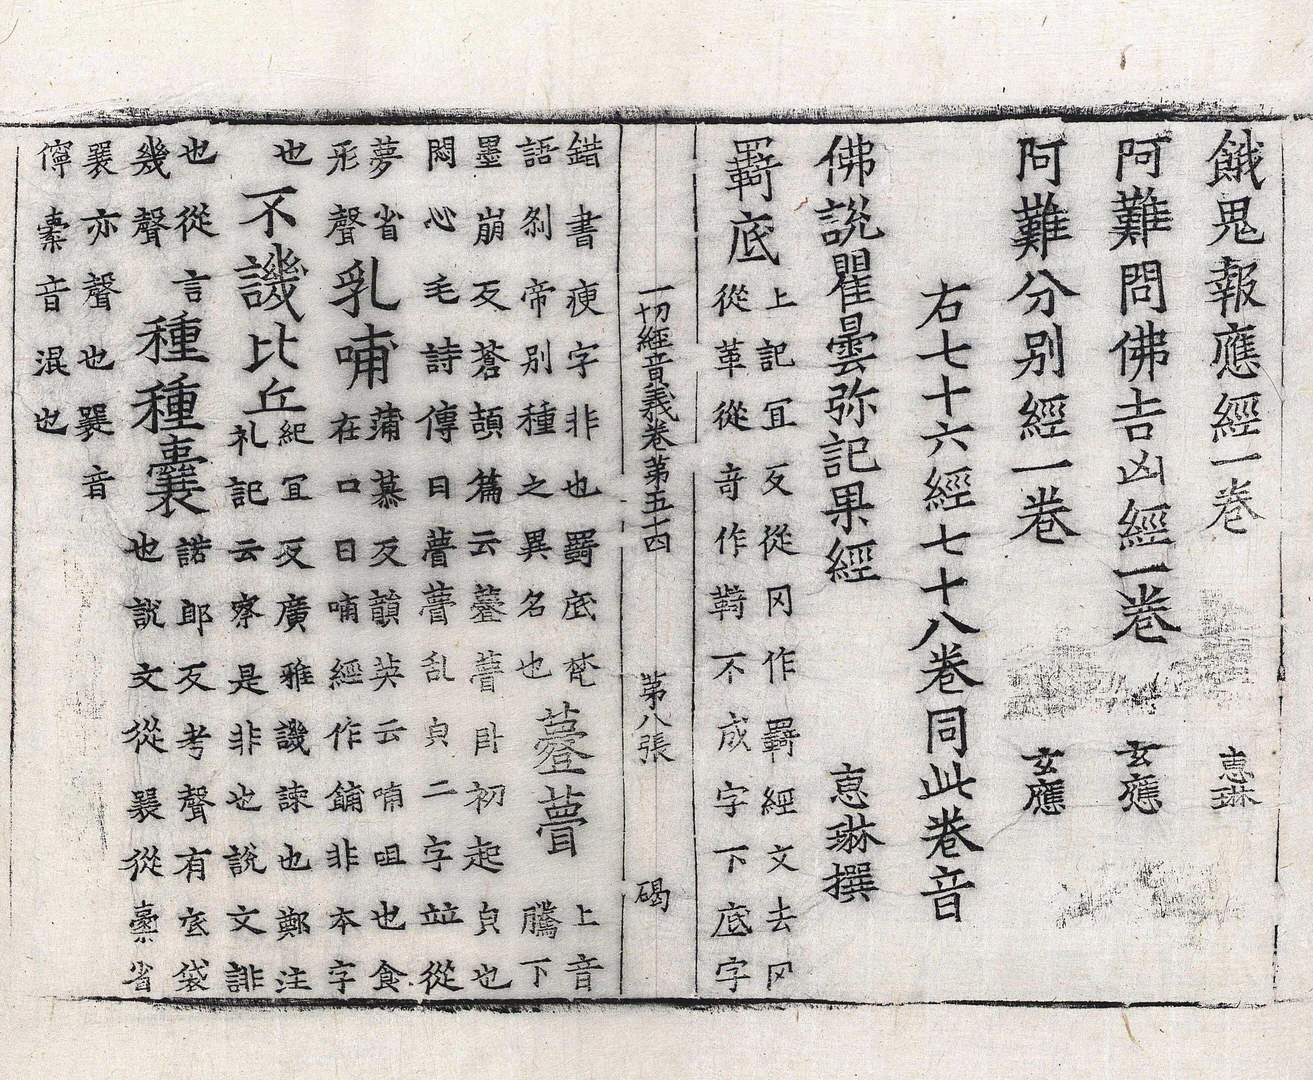 餓鬼報應經一卷 惠琳
阿難問佛吉凶經一卷 玄應
阿難分別經一卷 玄應
右七十六經七十八卷同此卷音
佛說瞿曇弥記果經 惠琳撰
羇底
上記冝反從冈作羇經文去冈
從革從奇作䩭不成字下底字
一切經音義卷第五十四 第八張 碣
錯書㾘字非也羇底梵
語剡帝別種之異名也
薹瞢
上音
騰下
墨崩反蒼頡篇云薹瞢卧初起皃也
悶心毛詩傳曰瞢瞢乱皃二字竝從
夢省
形聲
乳哺
蒲慕反韻英云哺咀也食
在口曰哺經作餔非本字
也
不譏比丘
紀冝反廣雅譏諫也鄭注
礼記云察是非也說文誹
也從言
幾聲
種種囊
諾郎反考聲有底袋
也說文從㐮從㯻省
㐮亦聲也㐮音
儜橐音混也